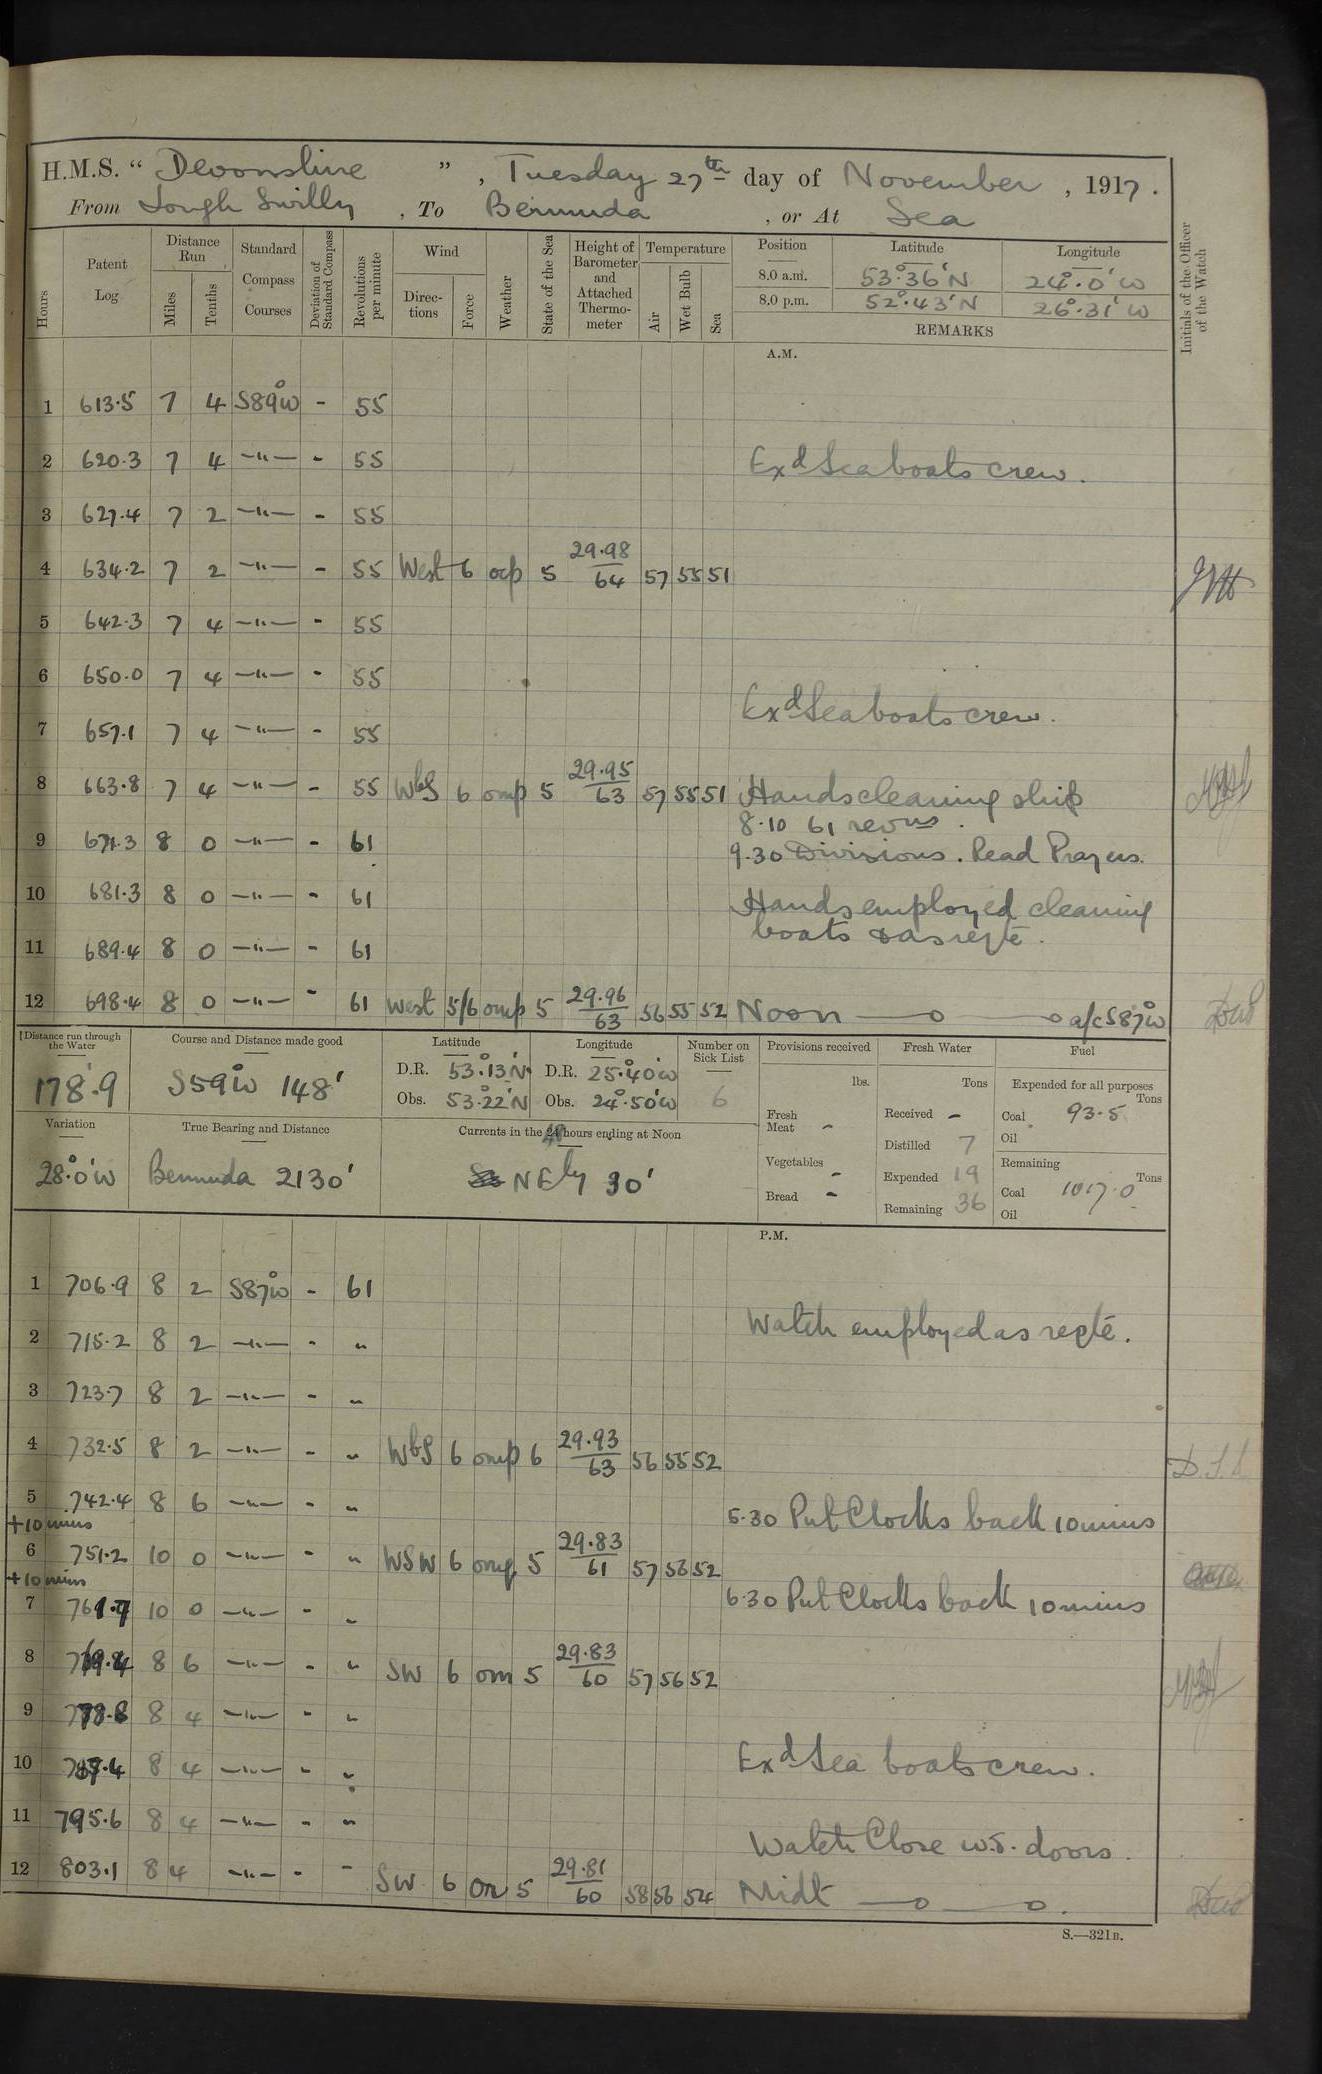 H.M.S. "Devonshire", Tuesday 27th day of November, 1917.
From Lough Swilly, To Bermuda, or At Sea
Hours Patent Log Distance Run Miles Tenths Standard Compass Courses Deviation of Standard Compass Revolutions per minute Wind Directions Force Weather State of the Sea Height of Barometer and Attached Thermometer Temperature Air Wet Bulb Sea Position Latitude Longitude Initials of the Officer of the Watch
8.0 a.m. 53°.36'N 24°.0'W
8.0 p.m. 52°.43'N 26°.31'W
REMARKS
A.M.
1 613.5 7 4 S89°W - 55
2 620.3 7 4 —"— - 55 Exd Sea boats crew.
3 627.4 7 2 —"— - 55
4 634.2 7 2 —"— - 55 West 6 ocp 5 29.98/64 57 55 51
5 642.3 7 4 —"— - 55
6 650.0 7 4 —"— - 55
Exd Sea boats crew.
7 657.1 7 4 —"— - 55
8 663.8 7 4 —"— - 55 WbS 6 omp 5 29.95/63 57 55 51 Hands cleaning ship
8.10 61 revns.
9 671.3 8 0 —"— - 61 9.30 Divisions. Read Prayers.
10 681.3 8 0 —"— - 61 Hands employed cleaning
boats & as reqte.
11 689.4 8 0 —"— - 61
12 698.4 8 0 —"— - 61 West 5/6 omp 5 29.96/63 56 55 52 Noon —o —o a/c S87°W
Distance run through the Water Course and Distance made good Latitude Longitude Number on Sick List Provisions received Fresh Water Fuel
178.9 S59°W 148'
D.R. 53°.13'N D.R. 25°.40'W
Obs. 53°.22'N Obs. 24°.50'W 6
lbs. Tons Expended for all purposes Tons
Fresh Meat - Received - Coal 93.5
Oil
Variation True Bearing and Distance Currents in the 48 hours ending at Noon
Distilled 7 Remaining Tons
28°.0'W Bermuda 2130' NEly 30'
Vegetables - Expended 19 Coal 1017.0
Bread - Remaining 36 Oil
P.M.
1 706.9 8 2 S87°W - 61
2 715.2 8 2 —"— - " Watch employed as reqte.
3 723.7 8 2 —"— - "
4 732.5 8 2 —"— - " WbS 6 omp 6 29.93/63 56 55 52 D.S.
5 742.4 8 6 —"— - " 5.30 Put Clocks back 10 mins
+10 mins
6 751.2 10 0 —"— - " WSW 6 omq 5 29.83/61 57 56 52
+10 mins
6.30 Put Clocks back 10 mins
7 761.7 10 0 —"— - "
8 8 6 —"— - " SW 6 om 5 29.83/60 57 56 52
9 8 4 —"— - "
10 787.4 8 4 —"— - " Exd Sea boats crew.
11 795.6 8 4 —"— - "
Watch Close W.T. doors.
12 803.1 8 4 —"— - - SW 6 om 5 29.81/60 58 56 54 Midt —o —o.
S.—321B.